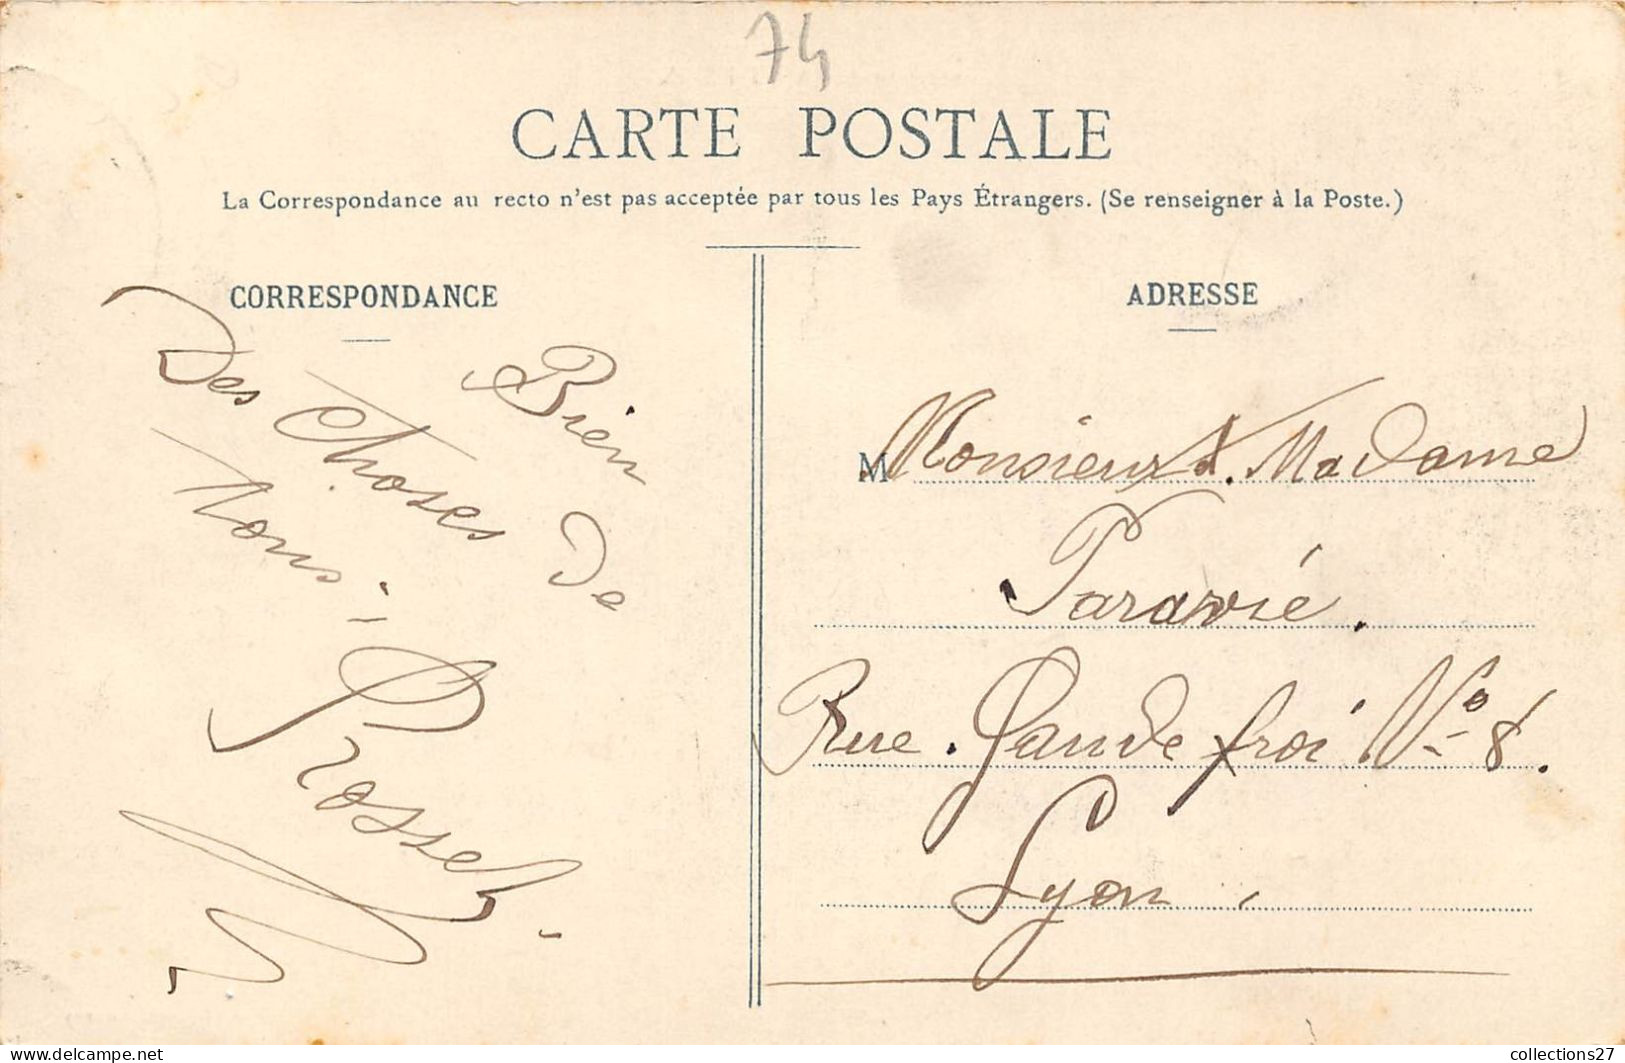 74
CARTE POSTALE
La Correspondance au recto n'est pas acceptée par tous les Pays Étrangers. (Se renseigner à la Poste.)
CORRESPONDANCE
Bien
Des Choses de
Nous
ADRESSE
M Monsieur & Madame
Rue. Gandefroi N° 8.
Lyon
collections27